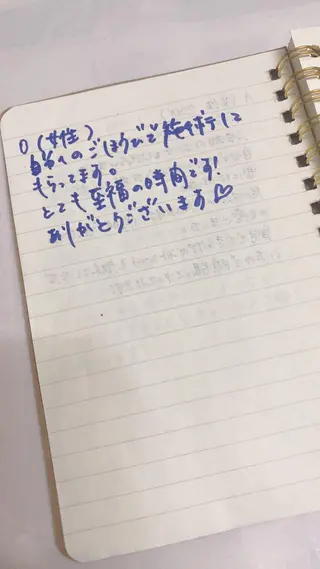 O (女性)
自分へのごほうびで施術して
もらってます。
とても至福の時間です!
ありがとうございます♡